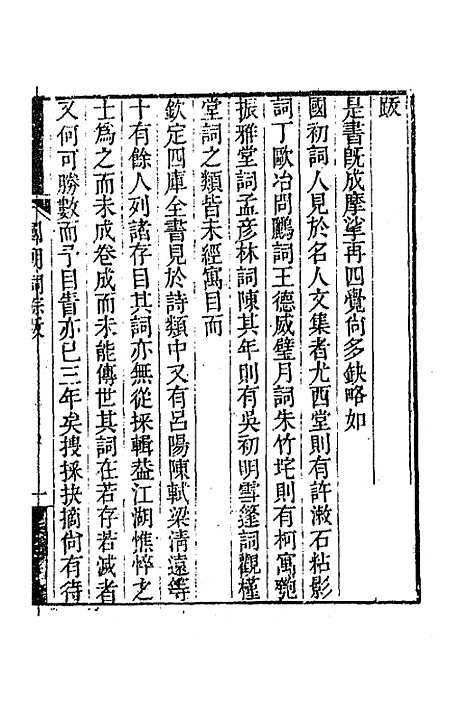 跋
是書旣成摩挲再四覺尙多缺略如
國初詞人見於名人文集者尤西堂則有許漱石粘影
詞丁歐冶問鸝詞王德威璧月詞朱竹垞則有柯寓匏
振雅堂詞孟彥林詞陳其年則有吳初明雪篷詞觀槿
堂詞之類皆未經寓目而
欽定四庫全書見於詩類中又有呂陽陳軾梁淸遠等
十有餘人列諸存目其詞亦無從採輯葢江湖憔悴之
士爲之而未成卷成而未能傳世其詞在若存若滅者
又何可勝數而予目眚亦已三年矣搜採抉摘尙有待
國朝詞綜跋
一